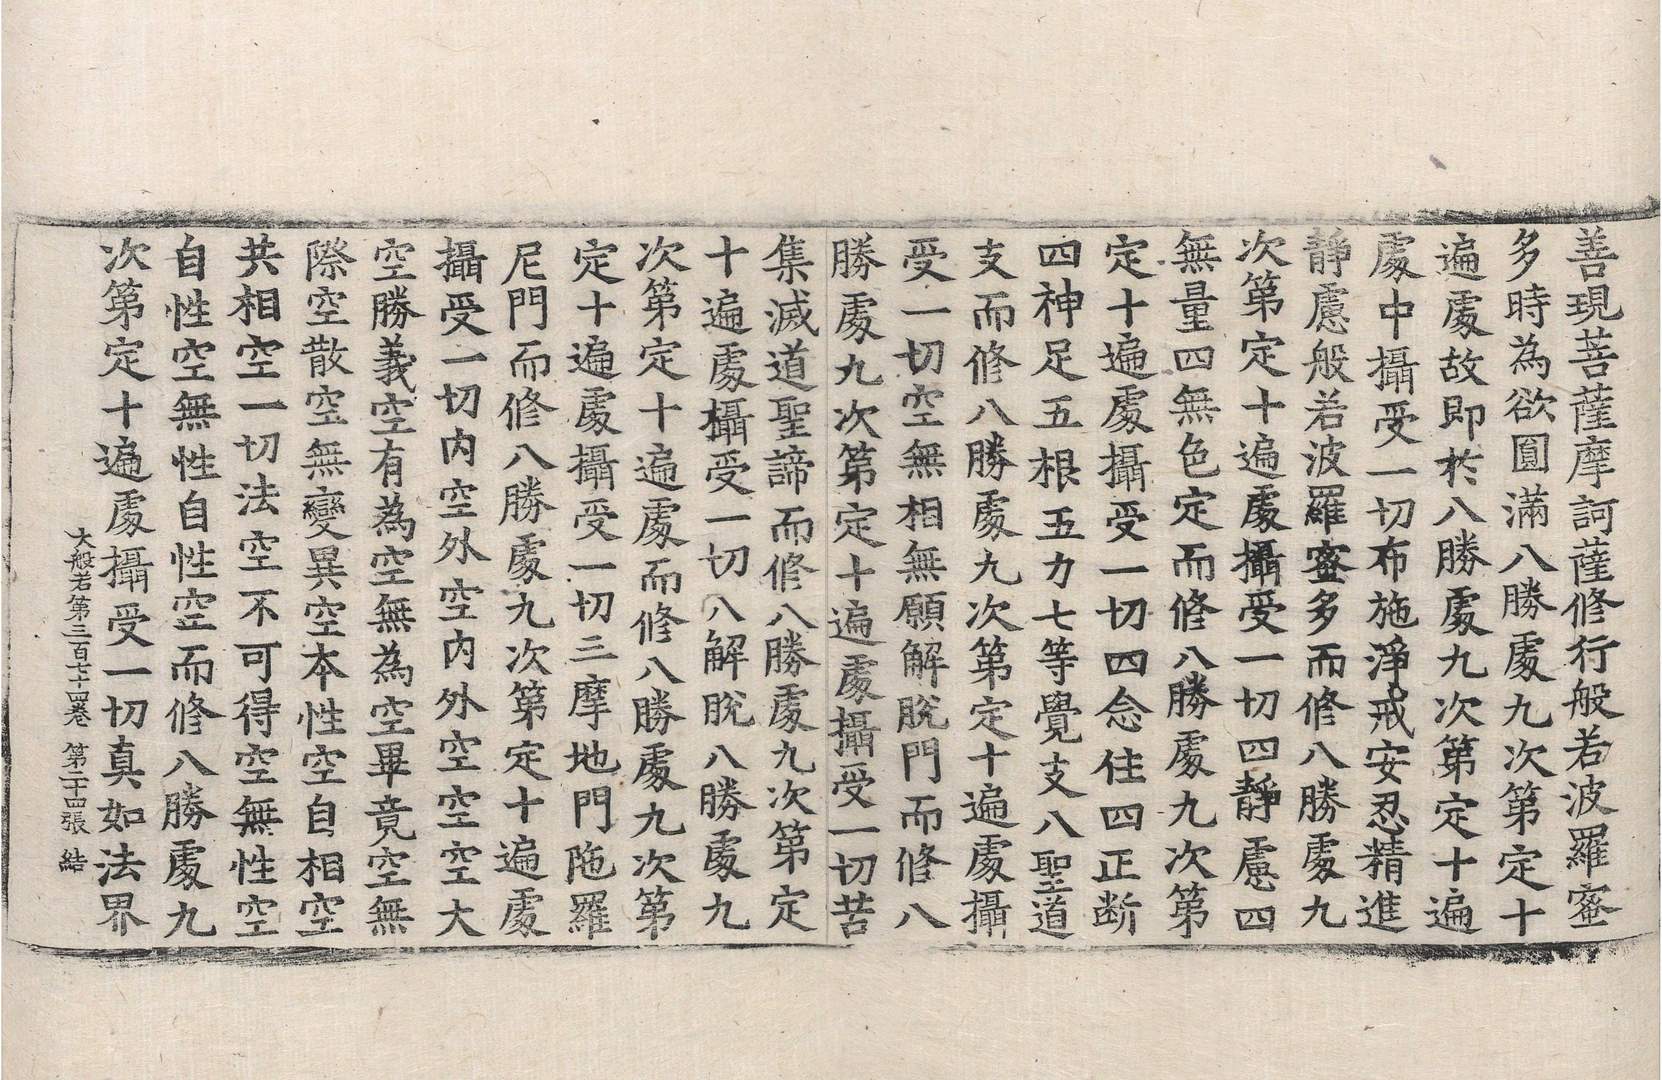 善現菩薩摩訶薩修行般若波羅蜜
多時為欲圓滿八勝處九次第定十
遍處故即於八勝處九次第定十遍
處中攝受一切布施淨戒安忍精進
靜慮般若波羅蜜多而修八勝處九
次第定十遍處攝受一切四靜慮四
無量四無色定而修八勝處九次第
定十遍處攝受一切四念住四正断
四神足五根五力七等覺支八聖道
支而修八勝處九次第定十遍處攝
受一切空無相無願解脫門而修八
勝處九次第定十遍處攝受一切苦
集滅道聖諦而修八勝處九次第定
十遍處攝受一切八解脫八勝處九
次第定十遍處而修八勝處九次第
定十遍處攝受一切三摩地門陁羅
尼門而修八勝處九次第定十遍處
攝受一切內空外空內外空空空大
空勝義空有為空無為空畢竟空無
際空散空無變異空本性空自相空
共相空一切法空不可得空無性空
自性空無性自性空而修八勝處九
次第定十遍處攝受一切真如法界
大般若第三百七十四卷 第二十四張 結